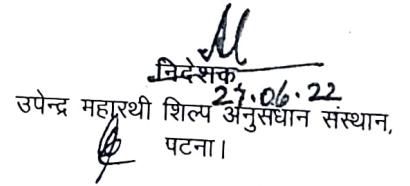 निदेशक
27.06.22
उपेन्द्र महारथी शिल्प अनुसंधान संस्थान,
पटना।